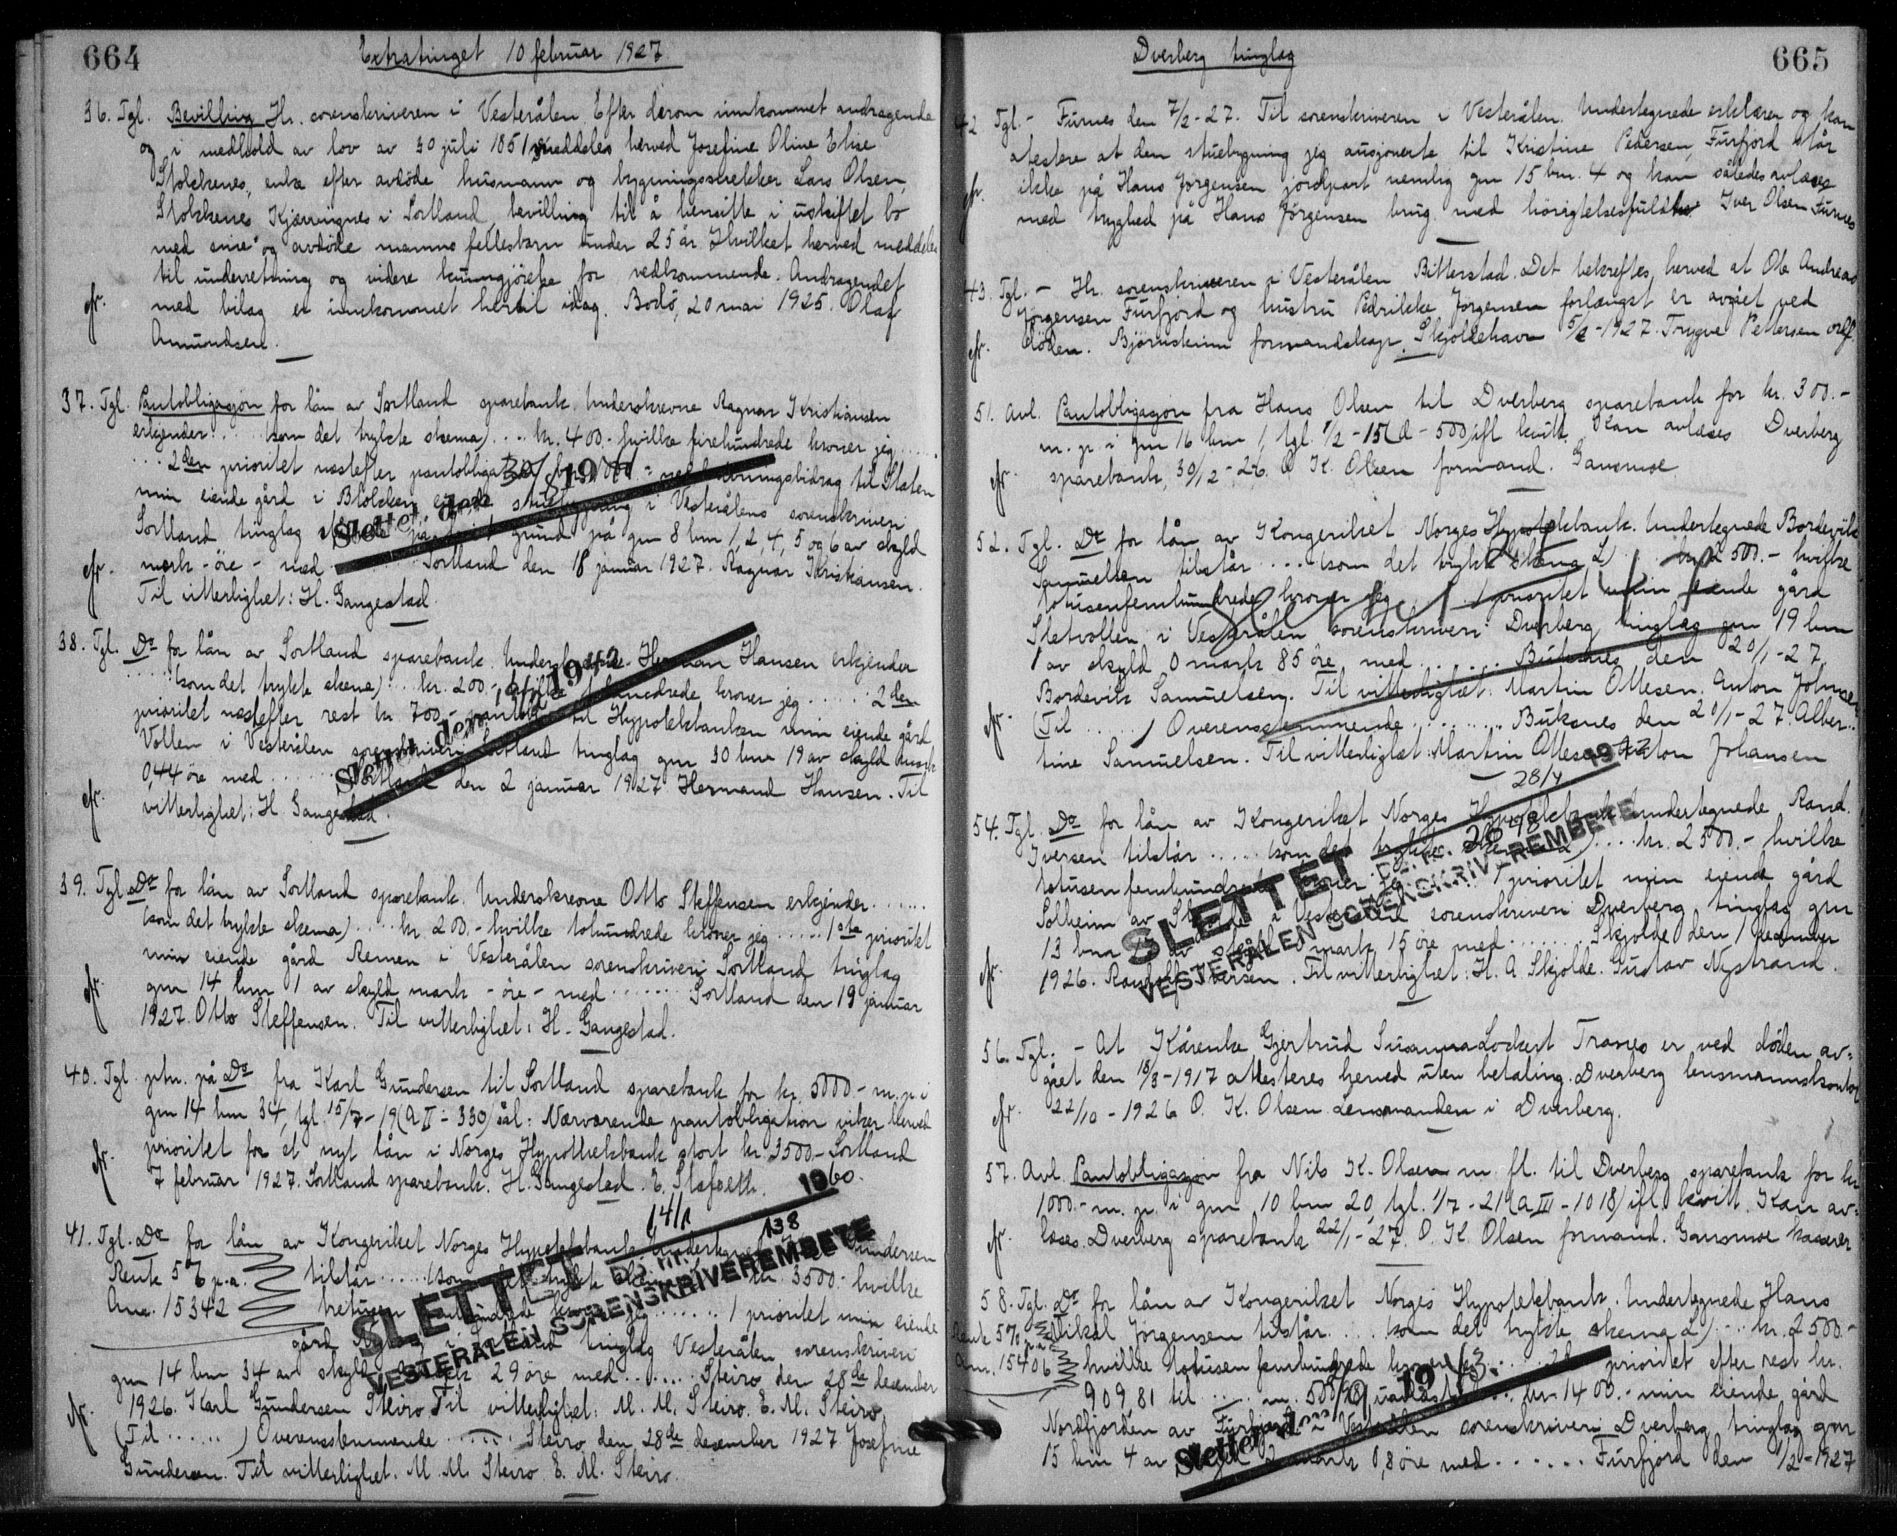 664
Extratinget 10 februar 1927
36. Tgl. Bevilling Hr. sorenskriveren i Vesterålen. Efter derom innkommet andragende
og i medhold av lov av 30 juli 1851 meddeles herved Josefine Oline Elise
Blokkenes, enke efter avdöde husmann og bygningssnekker Lars Olsen,
Blokkenes Kjærringnes i Sortland, bevilling til å hensitte i uskiftet bo
med sine og avdöde manns fellesbarn under 25 år. Hvilket herved meddeles
til underretning og videre kunngjörelse for vedkommende. Andragendet
med bilag er innkommet hertil idag. Bodö, 20 mai 1925. Olaf
Amundsen.
37. Tgl. Pantobligasjon for lån av Sortland sparebank. Underskrevne Ragnar Kristiansen
erkjender .... (som det trykte skema) .... kr. 400.- hvilke firehundrede kroner jeg ......
.... 2den prioritet næstefter pantobligation til Staten
min eiende gård i Blokken i Vesterålens sorenskriveri
Sortland tinglag grund på gnr 8 bnr 1, 2, 4, 5 og 6 av skyld
mark - öre - med Sortland den 18 januar 1927. Ragnar Kristiansen.
Til vitterlighet: H. Gangestad.
Slettet den 1941
38. Tgl. Do for lån av Sortland sparebank. Herman Hansen erkjender
(som det trykte skema) ... kr. 200.- kroner jeg ...... 2den
prioritet næstefter rest kr 700.- til Hypotekbanken min eiende gård
Vollen i Vesterålen sorenskriveri Sortland tinglag gnr 30 bnr 19 av skyld mark
0,44 öre med ........ Sortland den 2 januar 1927 Hermand Hansen. Til
vitterlighet: H. Gangestad.
Slettet den 1942
39. Tgl. Do for lån av Sortland sparebank. Underskrevne Otto Steffensen erkjender ......
(som det trykte skema) ..... kr 200.- hvilke tohundrede kroner jeg ..... 1ste prioritet
min eiende gård Remen i Vesterålen sorenskriveri Sortland tinglag
gnr 14 bnr 1 av skyld mark - öre - med ........ Sortland den 19 januar
1927. Otto Steffensen. Til vitterlighet: H. Gangestad.
40. Tgl. ptn. på Do fra Karl Gundersen til Sortland sparebank for kr. 5000.- m. p. i
gnr 14 bnr 34, tgl. 15/7-19 (A II - 330) sål: Nærværende pantobligation viker herved
prioritet for et nyt lån i Norges Hypothekbank stort kr 3500.- Sortland
7 februar 1927. Sortland sparebank. H. Gangestad.
41. Tgl. Do for lån av Kongeriket Norges Hypotekbank Undertegnede Gundersen
Rente 5% p.a. tilstår ..... (som det trykte kr. 3500.- hvilke
Ann. 15342 kroner jeg ....... 1 prioritet min eiende
gård i tinglag Vesterålen sorenskriveri
gnr 14 bnr 34 av skyld 29 öre med ....... Steiro den 28de desember
1926. Karl Gundersen Steiro Til vitterlighet: M. M. Steiro. E. M. Steiro
(Til ......) Overensstemmende ....... Steiro den 28de desember 1927 Josefine
Gundersen. Til vitterlighet. M. M. Steiro E. M. Steiro.
14/1 1960.
SLETTET Db. nr. 138
VESTERÅLEN SORENSKRIVEREMBETE
Dverberg tinglag
665
42 Tgl. - Furnes den 7/2-27. Til sorenskriveren i Vesterålen. Undertegnede erklærer og kan
atestere at den stuebygning jeg ausjonerte til Kristine Pedersen, Furfjord står
ikke på Hans Jörgensen jordpart nemlig gnr 15 bnr. 4 og kan således avlæses
med tryghed på Hans Jörgensen brug. med höiagtelsesfuldhet Iver Olsen Furnes
43. Tgl. - Hr. sorenskriveren i Vesterålen Bitterstad. Det bekreftes herved at Ole Andreas
Jörgensen Furfjord og hustru Pedrikke Jörgensen forlængst er avgået ved
döden. Björnskinn formandskap, Skjoldehavn 5/2-1927. Trygve Pettersen ordf.
51. Avl. Pantobligasjon fra Hans Olsen til Dverberg sparebank for kr. 300.-
m. p. i gnr 16 bnr 1, tgl. 1/2-15 (Q-500) ifl. kvitt. Kan avlæses Dverberg
sparebank, 30/12-26. O. K. Olsen formand. Gansmoe
52. Tgl. Do for lån av Kongeriket Norges Hypotekbank. Undertegnede Bordevik
Samuelsen tilstår .... (som det trykte skema L) kr. 2500.- hvilke
totusenfemhundrede kroner jeg ... 1 prioritet min eiende gård
Sletvollen i Vesterålen sorenskriveri Dverberg tinglag gnr 19 bnr
1 av skyld 0 mark 85 öre med ....... Buknes den 20/1-27
Bordevik Samuelsen. Til vitterlighet: Martin Ottesen. Anton Johnsen
(Til .....) Overensstemmende .......... Buksnes den 20/1-27. Alber-
tine Samuelsen. Til vitterlighet: Martin Ottesen Anton Johansen
54. Tgl. Do for lån av Kongeriket Norges Hypotekbank Undertegnede Rand.
Iversen tilstår ..... (som det trykte .... kr. 2500.- hvilke
totusenfemhundrede kroner 1 prioritet min eiende gård
Solheim av i sorenskriveri Dverberg tinglag gnr
13 bnr av skyld mark 15 öre med ......... Skjolde den 1 desember
1926. Randolf Iversen. Til vitterlighet: H. A Skjolde. Gustav Nystrand.
28/4
SLETTET Db. nr.
VESTERÅLEN SORENSKRIVEREMBETE
56. Tgl. - At Kårenke Gjertrud Susanna Lockert Tranes er ved döden av-
gået den 18/3-1917 attesteres herved uten betaling. Dverberg lensmannskontor
22/10-1926 O. K. Olsen Lensmanden i Dverberg.
57. Avl. Pantobligasjon fra Nils K. Olsen m. fl. til Dverberg sparebank for kr
1000.- m. p. i gnr 10 bnr 20, tgl. 1/7-21 (A III - 1018) ifl. kvitt. Kan av-
læses. Dverberg sparebank 22/1-27. O. K. Olsen formand. Gansmoe kasserer
58. Tgl. Do for lån av Kongeriket Norges Hypotekbank. Undertegnede Hans
Rente 5% p.a. Mikal Jörgensen tilstår .... (som det trykte skema L) ... kr. 2500.-
Ann. 15406 hvilke totusenfemhundrede kroner jeg prioritet efter rest kr.
909,81 til kr. 1400.- min eiende gård
Nordfjorden av Furfjord i Vesterålen sorenskriveri Dverberg tinglag gnr
15 bnr 4 av skyld 2 mark 0,8 öre med ...... Furfjord den 1/2-1927
Slettet den 1943.